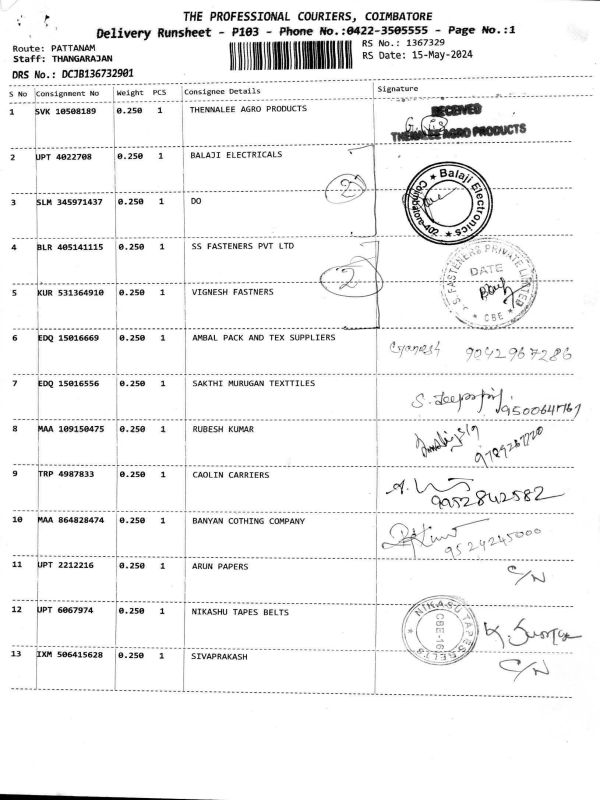 THE PROFESSIONAL COURIERS, COIMBATORE
Delivery Runsheet - P103 - Phone No.:0422-3505555 - Page No.:1
Route: PATTANAM
RS No.: 1367329
Staff: THANGARAJAN
RS Date: 15-May-2024
DRS No.: DCJB136732901
S No Consignment No Weight PCS Consignee Details Signature
1 SVK 10508189 0.250 1 THENNALEE AGRO PRODUCTS
RECEIVED
THENNALEE AGRO PRODUCTS
2 UPT 4022708 0.250 1 BALAJI ELECTRICALS
2
Balaji Electronics
Coimbatore-402
3 SLM 345971437 0.250 1 DO
4 BLR 405141115 0.250 1 SS FASTENERS PVT LTD
2
S. FASTENERS PRIVATE LIMITED
DATE
CBE
5 KUR 531364910 0.250 1 VIGNESH FASTNERS
6 EDQ 15016669 0.250 1 AMBAL PACK AND TEX SUPPLIERS Ganesh 9042967286
7 EDQ 15016556 0.250 1 SAKTHI MURUGAN TEXTTILES
8 MAA 109150475 0.250 1 RUBESH KUMAR
9 TRP 4987833 0.250 1 CAOLIN CARRIERS
9952842582
10 MAA 864828474 0.250 1 BANYAN COTHING COMPANY
9524245000
11 UPT 2212216 0.250 1 ARUN PAPERS C/N
12 UPT 6067974 0.250 1 NIKASHU TAPES BELTS
NIKASU TAPES BELTS
CBE-16
13 IXM 506415628 0.250 1 SIVAPRAKASH C/N